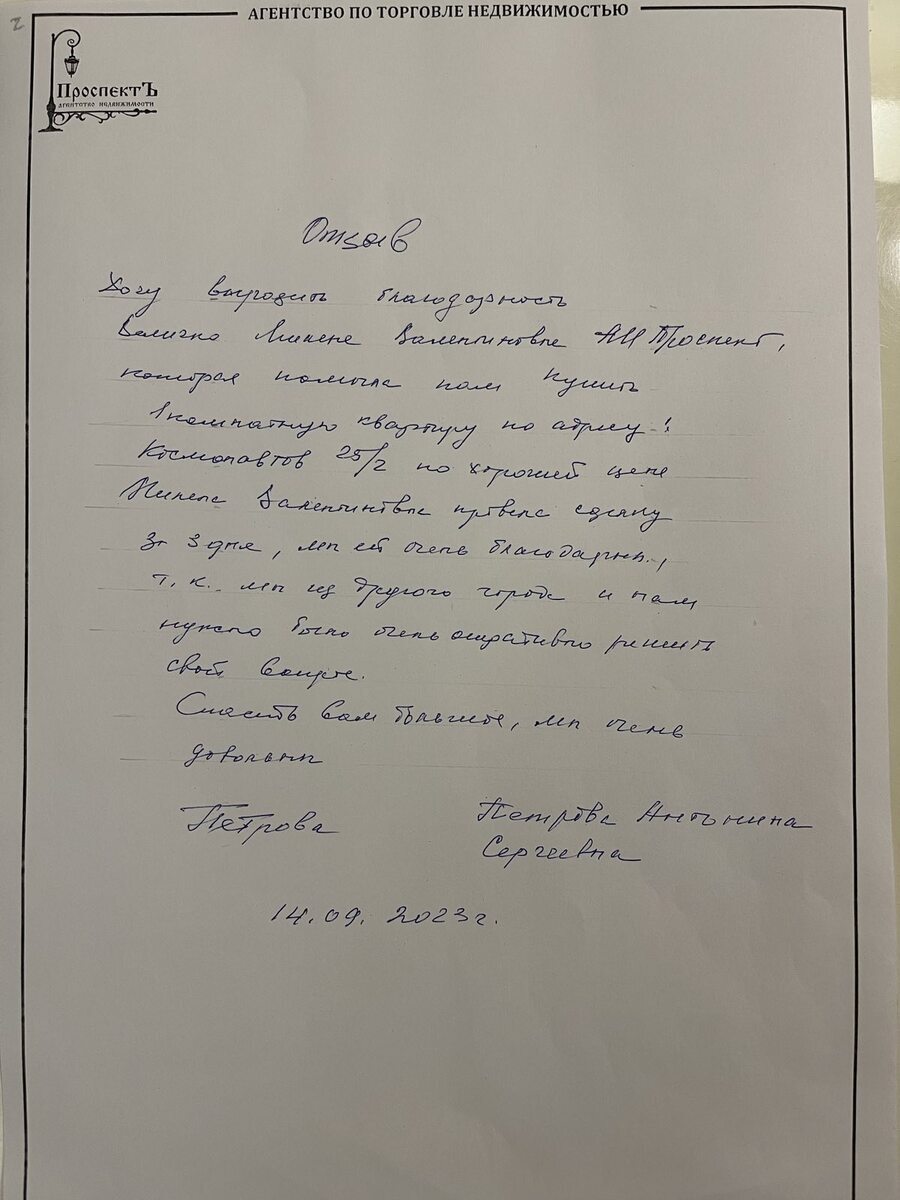 2
АГЕНТСТВО ПО ТОРГОВЛЕ НЕДВИЖИМОСТЬЮ
ПроспектЪ
агентство недвижимости
Отзыв
Хочу выразить благодарность
Величко Валентиновне АН Проспект,
которая помогла нам купить
1 комнатную квартиру по адресу:
Космонавтов 25/2 по хорошей цене
Валентиновна провела сделку
за 3 дня, мы ей очень благодарны,
т.к. мы из другого города и нам
нужно было очень оперативно решить
свой вопрос.
Спасибо вам большое, мы очень
довольны
Петрова Петрова Антонина
Сергеевна
14.09.2023г.